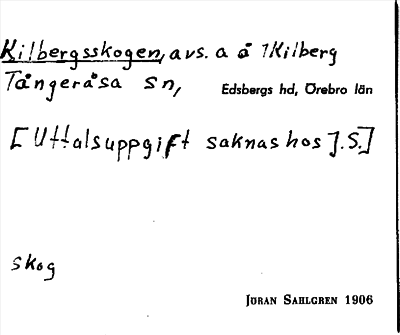 Kilbergsskogen, avs. a å 1Kilberg
Tångeråsa Sn, Edsbergs hd, Örebro län
[Uttalsuppgift saknas hos J.S.]
skog
JÖRAN SAHLGREN 1906